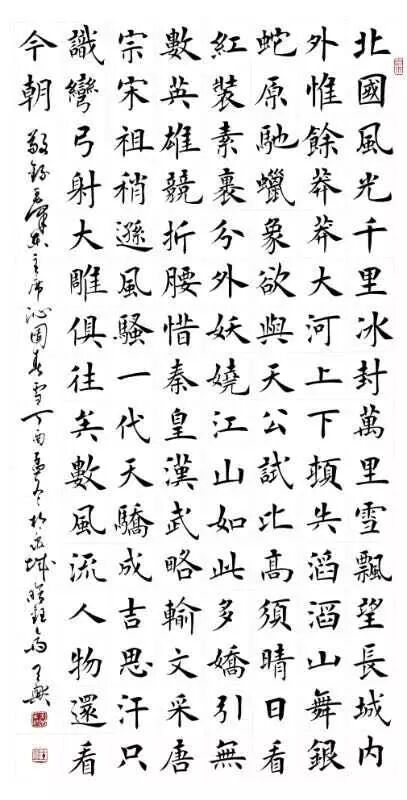 北國風光千里冰封萬里雪飄望長城内
外惟餘莽莽大河上下頓失滔滔山舞銀
蛇原馳蠟象欲與天公試比高須晴日看
紅裝素裹分外妖嬈江山如此多嬌引無
數英雄競折腰惜秦皇漢武略輸文采唐
宗宋祖稍遜風騷一代天驕成吉思汗只
識彎弓射大雕俱往矣數風流人物還看
今朝
敬錄毛澤東主席沁園春雪丁酉孟冬於